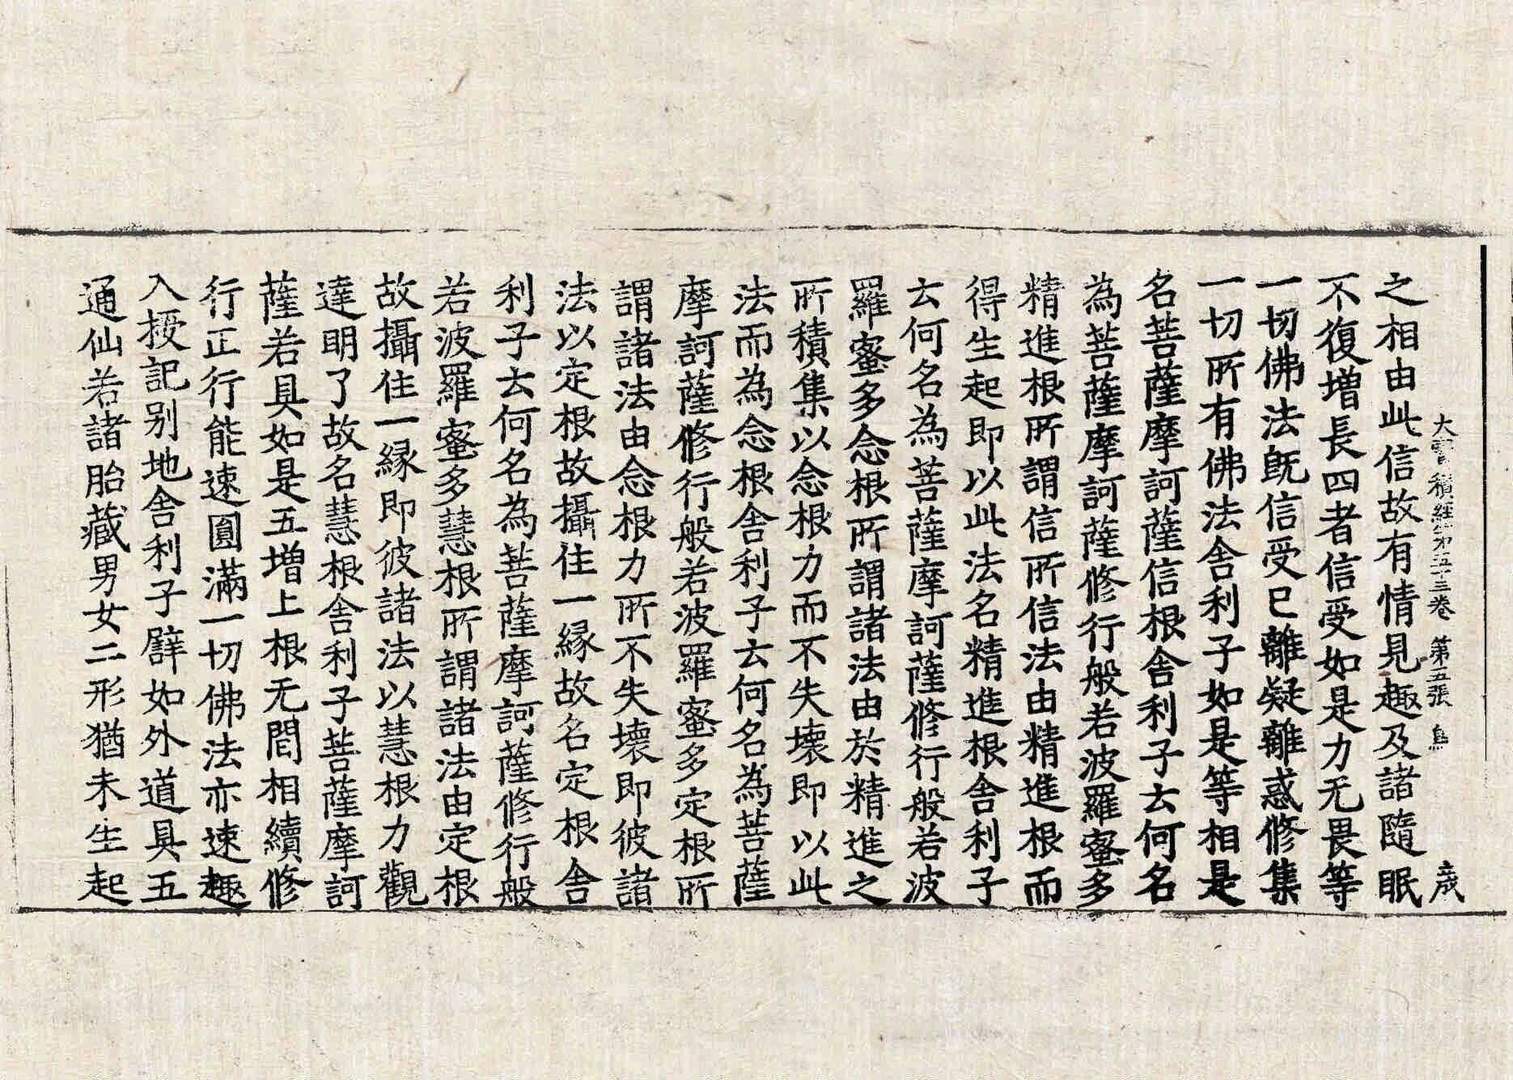 大寶積經第五十三卷 第五張 鳥
之相由此信故有情見趣及諸隨眠
不復增長四者信受如是力无畏等
一切佛法旣信受已離疑離惑修集
一切所有佛法舍利子如是等相是
名菩薩摩訶薩信根舍利子云何名
為菩薩摩訶薩修行般若波羅蜜多
精進根所謂信所信法由精進根而
得生起即以此法名精進根舍利子
云何名為菩薩摩訶薩修行般若波
羅蜜多念根所謂諸法由於精進之
所積集以念根力而不失壞即以此
法而為念根舍利子云何名為菩薩
摩訶薩修行般若波羅蜜多定根所
謂諸法由念根力所不失壞即彼諸
法以定根故攝住一緣故名定根舍
利子云何名為菩薩摩訶薩修行般
若波羅蜜多慧根所謂諸法由定根
故攝住一緣即彼諸法以慧根力觀
達明了故名慧根舍利子菩薩摩訶
薩若具如是五增上根无間相續修
行正行能速圓滿一切佛法亦速趣
入授記别地舍利子譬如外道具五
通仙若諸胎藏男女二形猶未生起